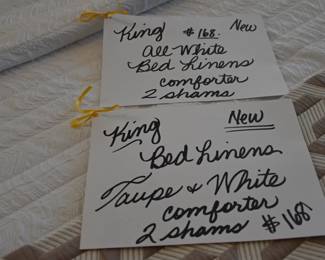 King $168. New
All White
Bed Linens
comforter
2 shams
King New
Bed Linens
Taupe & White
comforter
2 shams $168